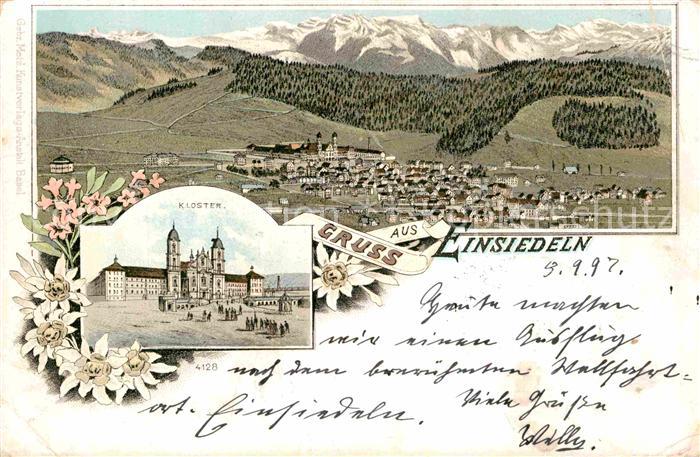 Gebr. Metz, Kunstverlags-Anstalt Basel
KLOSTER.
GRUSS
AUS
EINSIEDELN
3.9.97.
Heute machten
wir einen Ausflug
nach dem berühmten Wallfahrt-
ort. Einsiedeln. Viele Grüße
Willy.
4128